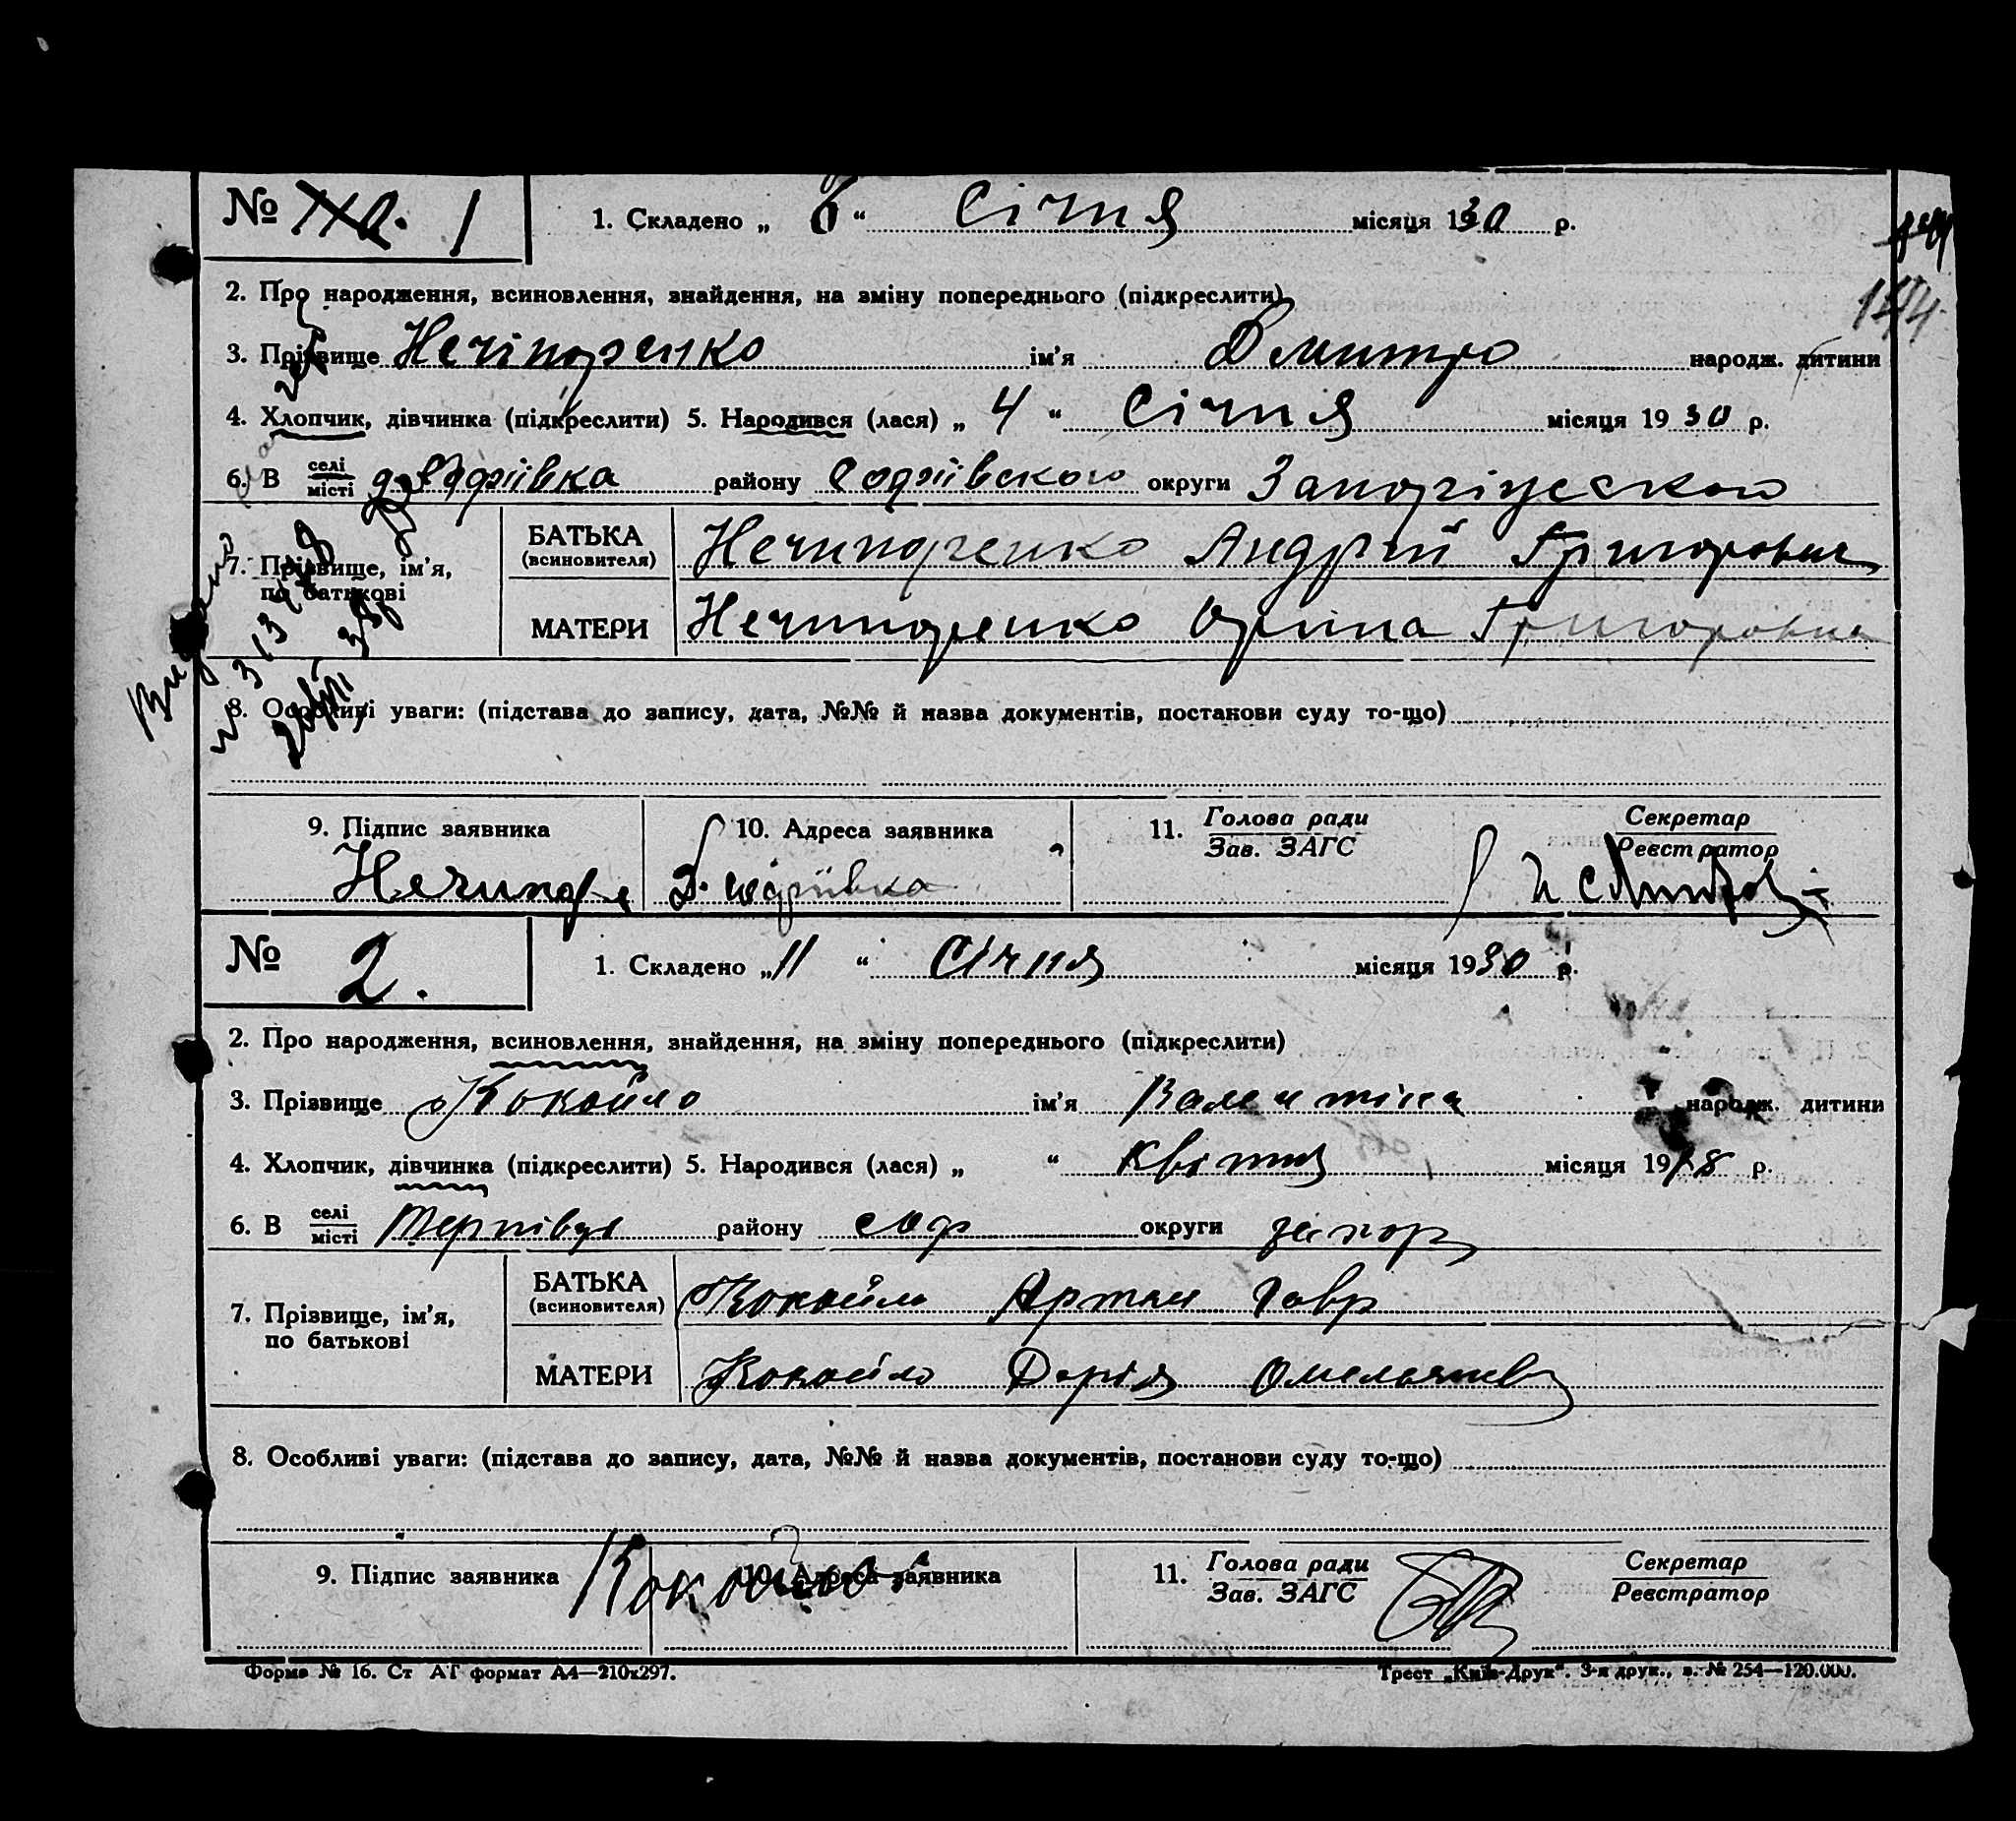 № 1 1. Складено „ 6 “ Січня місяця 1930 р.
144
2. Про народження, всиновлення, знайдення, на зміну попереднього (підкреслити)
3. Прізвище Нечіпоренко ім'я Дмитро народж. дитини
4. Хлопчик, дівчинка (підкреслити) 5. Народився (лася) „ 4 “ Січня місяця 1930 р.
6. В селі/місті Софіівка району Софіівского округи
7. Прізвище, ім'я, по батькові
БАТЬКА (всиновителя) Нечипоренко Андрій Григорович
МАТЕРИ Нечипоренко Орина Григоровна
Видано
8. Особливі уваги: (підстава до запису, дата, №№ й назва документів, постанови суду то-що)
9. Підпис заявника 10. Адреса заявника 11. Голова ради/Зав. ЗАГС Секретар/Реєстратор
№ 2. 1. Складено „11 “ Січня місяця 1930 р.
2. Про народження, всиновлення, знайдення, на зміну попереднього (підкреслити)
3. Прізвище Кокойло ім'я Валентіна народж. дитини
4. Хлопчик, дівчинка (підкреслити) 5. Народився (лася) „ “ квітня місяця 19 8 р.
6. В селі/місті Терпівці району соф округи запор
7. Прізвище, ім'я, по батькові
БАТЬКА (всиновителя) Кокойло Артем Гавр
МАТЕРИ Кокойло Дарія Омельянов
8. Особливі уваги: (підстава до запису, дата, №№ й назва документів, постанови суду то-що)
9. Підпис заявника Кокойло 10. Адреса заявника 11. Голова ради/Зав. ЗАГС Секретар/Реєстратор
Форма № 16. Ст АГ формат А4—210х297. Трест „Київ-Друк“. 3-я друк., з. № 254—120.000.